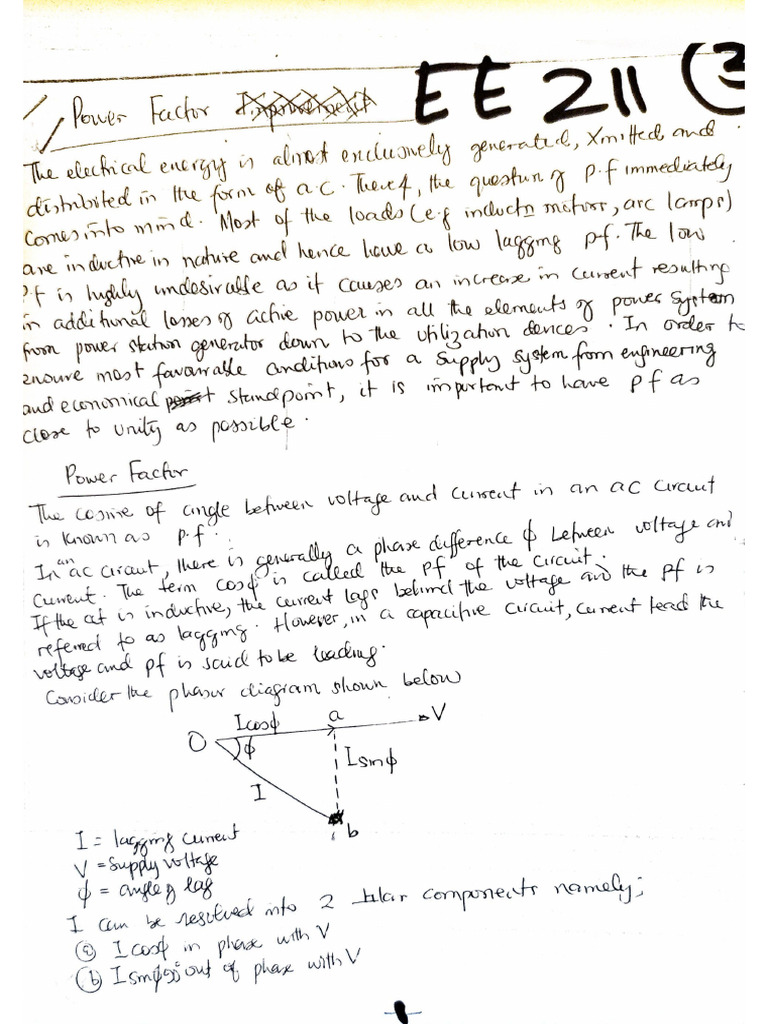 Power Factor Improvement EE 211 3
The electrical energy is almost exclusively generated, Xmitted and
distributed in the form of a.c. Theref, the question of p.f immediately
comes into mind. Most of the loads (e.g inductn motors, arc lamps)
are inductive in nature and hence have a low lagging pf. The low
P.f is highly undesirable as it causes an increase in current resulting
in additional losses of active power in all the elements of power system
from power station generator down to the utilization devices. In order to
ensure most favourable conditions for a supply system from engineering
and economical point standpoint, it is important to have pf as
close to unity as possible.
Power Factor
The cosine of angle between voltage and current in an ac circuit
is known as p.f.
In an ac circuit, there is generally a phase difference ϕ between voltage and
current. The term cosϕ is called the pf of the circuit.
If the cct is inductive, the current lags behind the voltage and the pf is
referred to as lagging. However, in a capacitive circuit, current lead the
voltage and pf is said to be leading.
Consider the phasor diagram shown below
Icosϕ a V
O ϕ
Isinϕ
I
b
I = lagging current
V = supply voltage
ϕ = angle of lag
I can be resolved into 2 ⊥lar components namely;
(a) I cosϕ in phase with V
(b) I sinϕ 90° out of phase with V